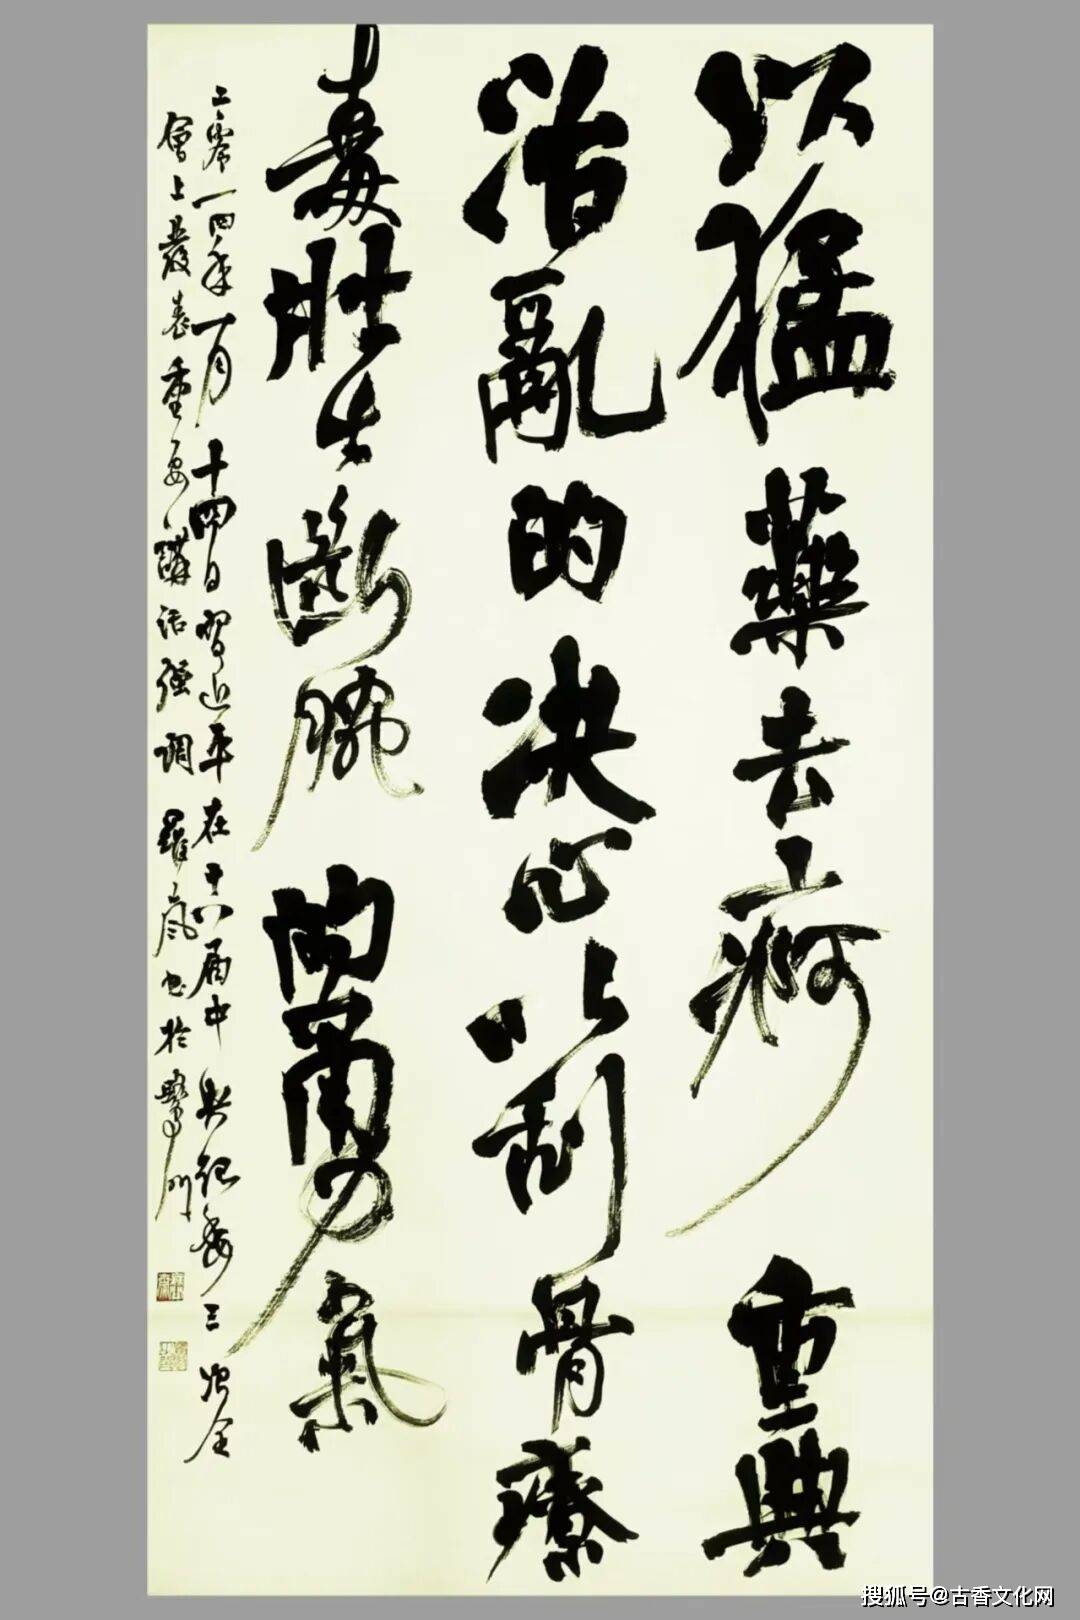 以猛藥去疴重典
治亂的决心以刮骨療
毒壯士断腕的勇氣
二零一四年一月十四日習近平在十八届中央紀委三次全
會上發表重要講話强調 羅 书於鷺門
搜狐号@古香文化网